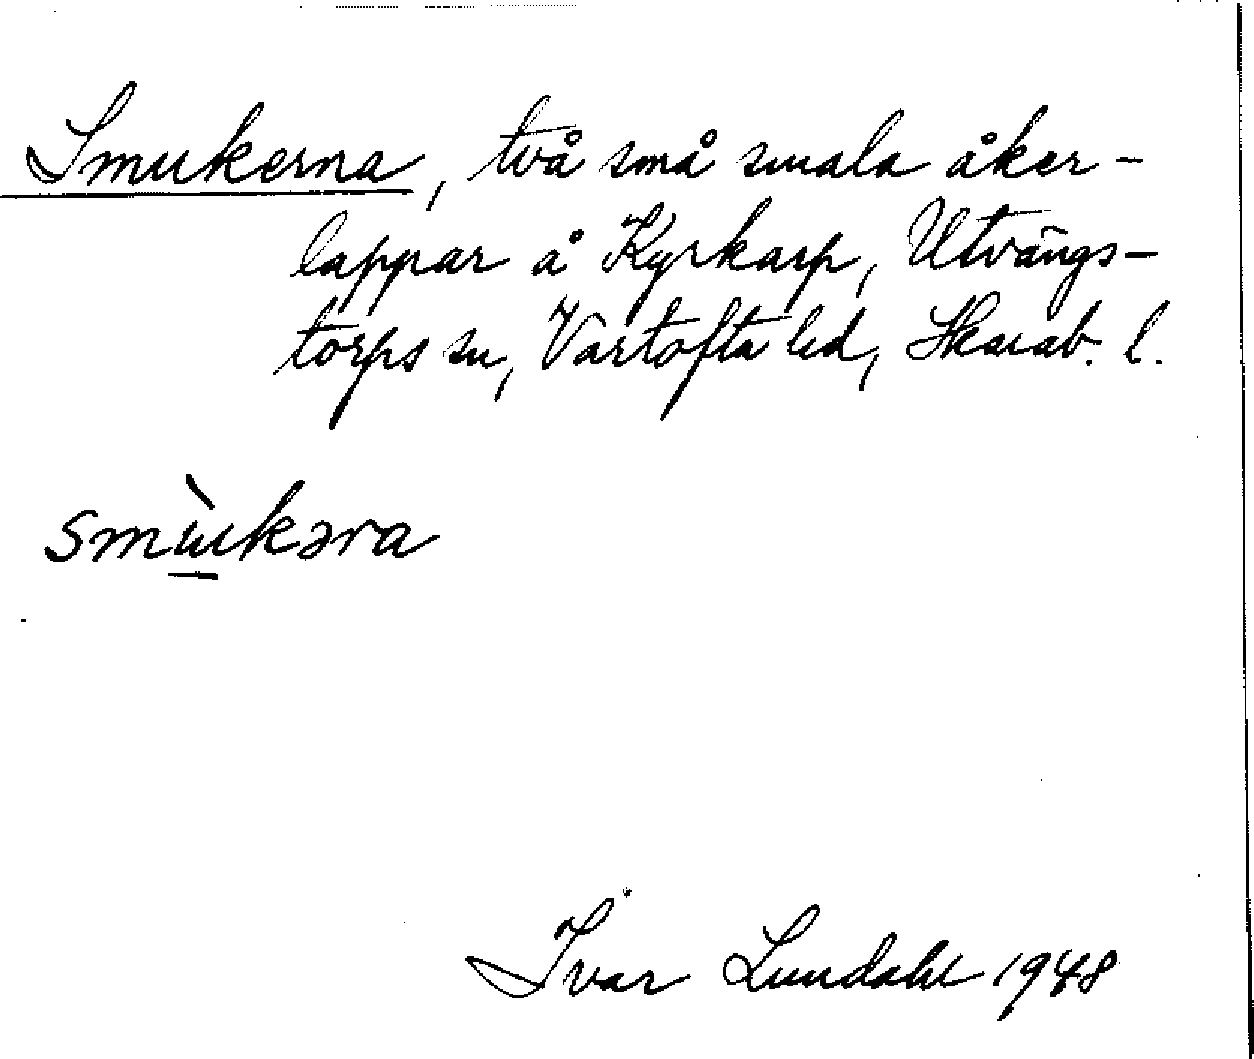 Smukerna, två små smala åker-
lappar å Kyrkarp, Utvängs-
torps sn, Vartofta hd, Skarab. l.
smùkəra
Ivar Lundahl 1948